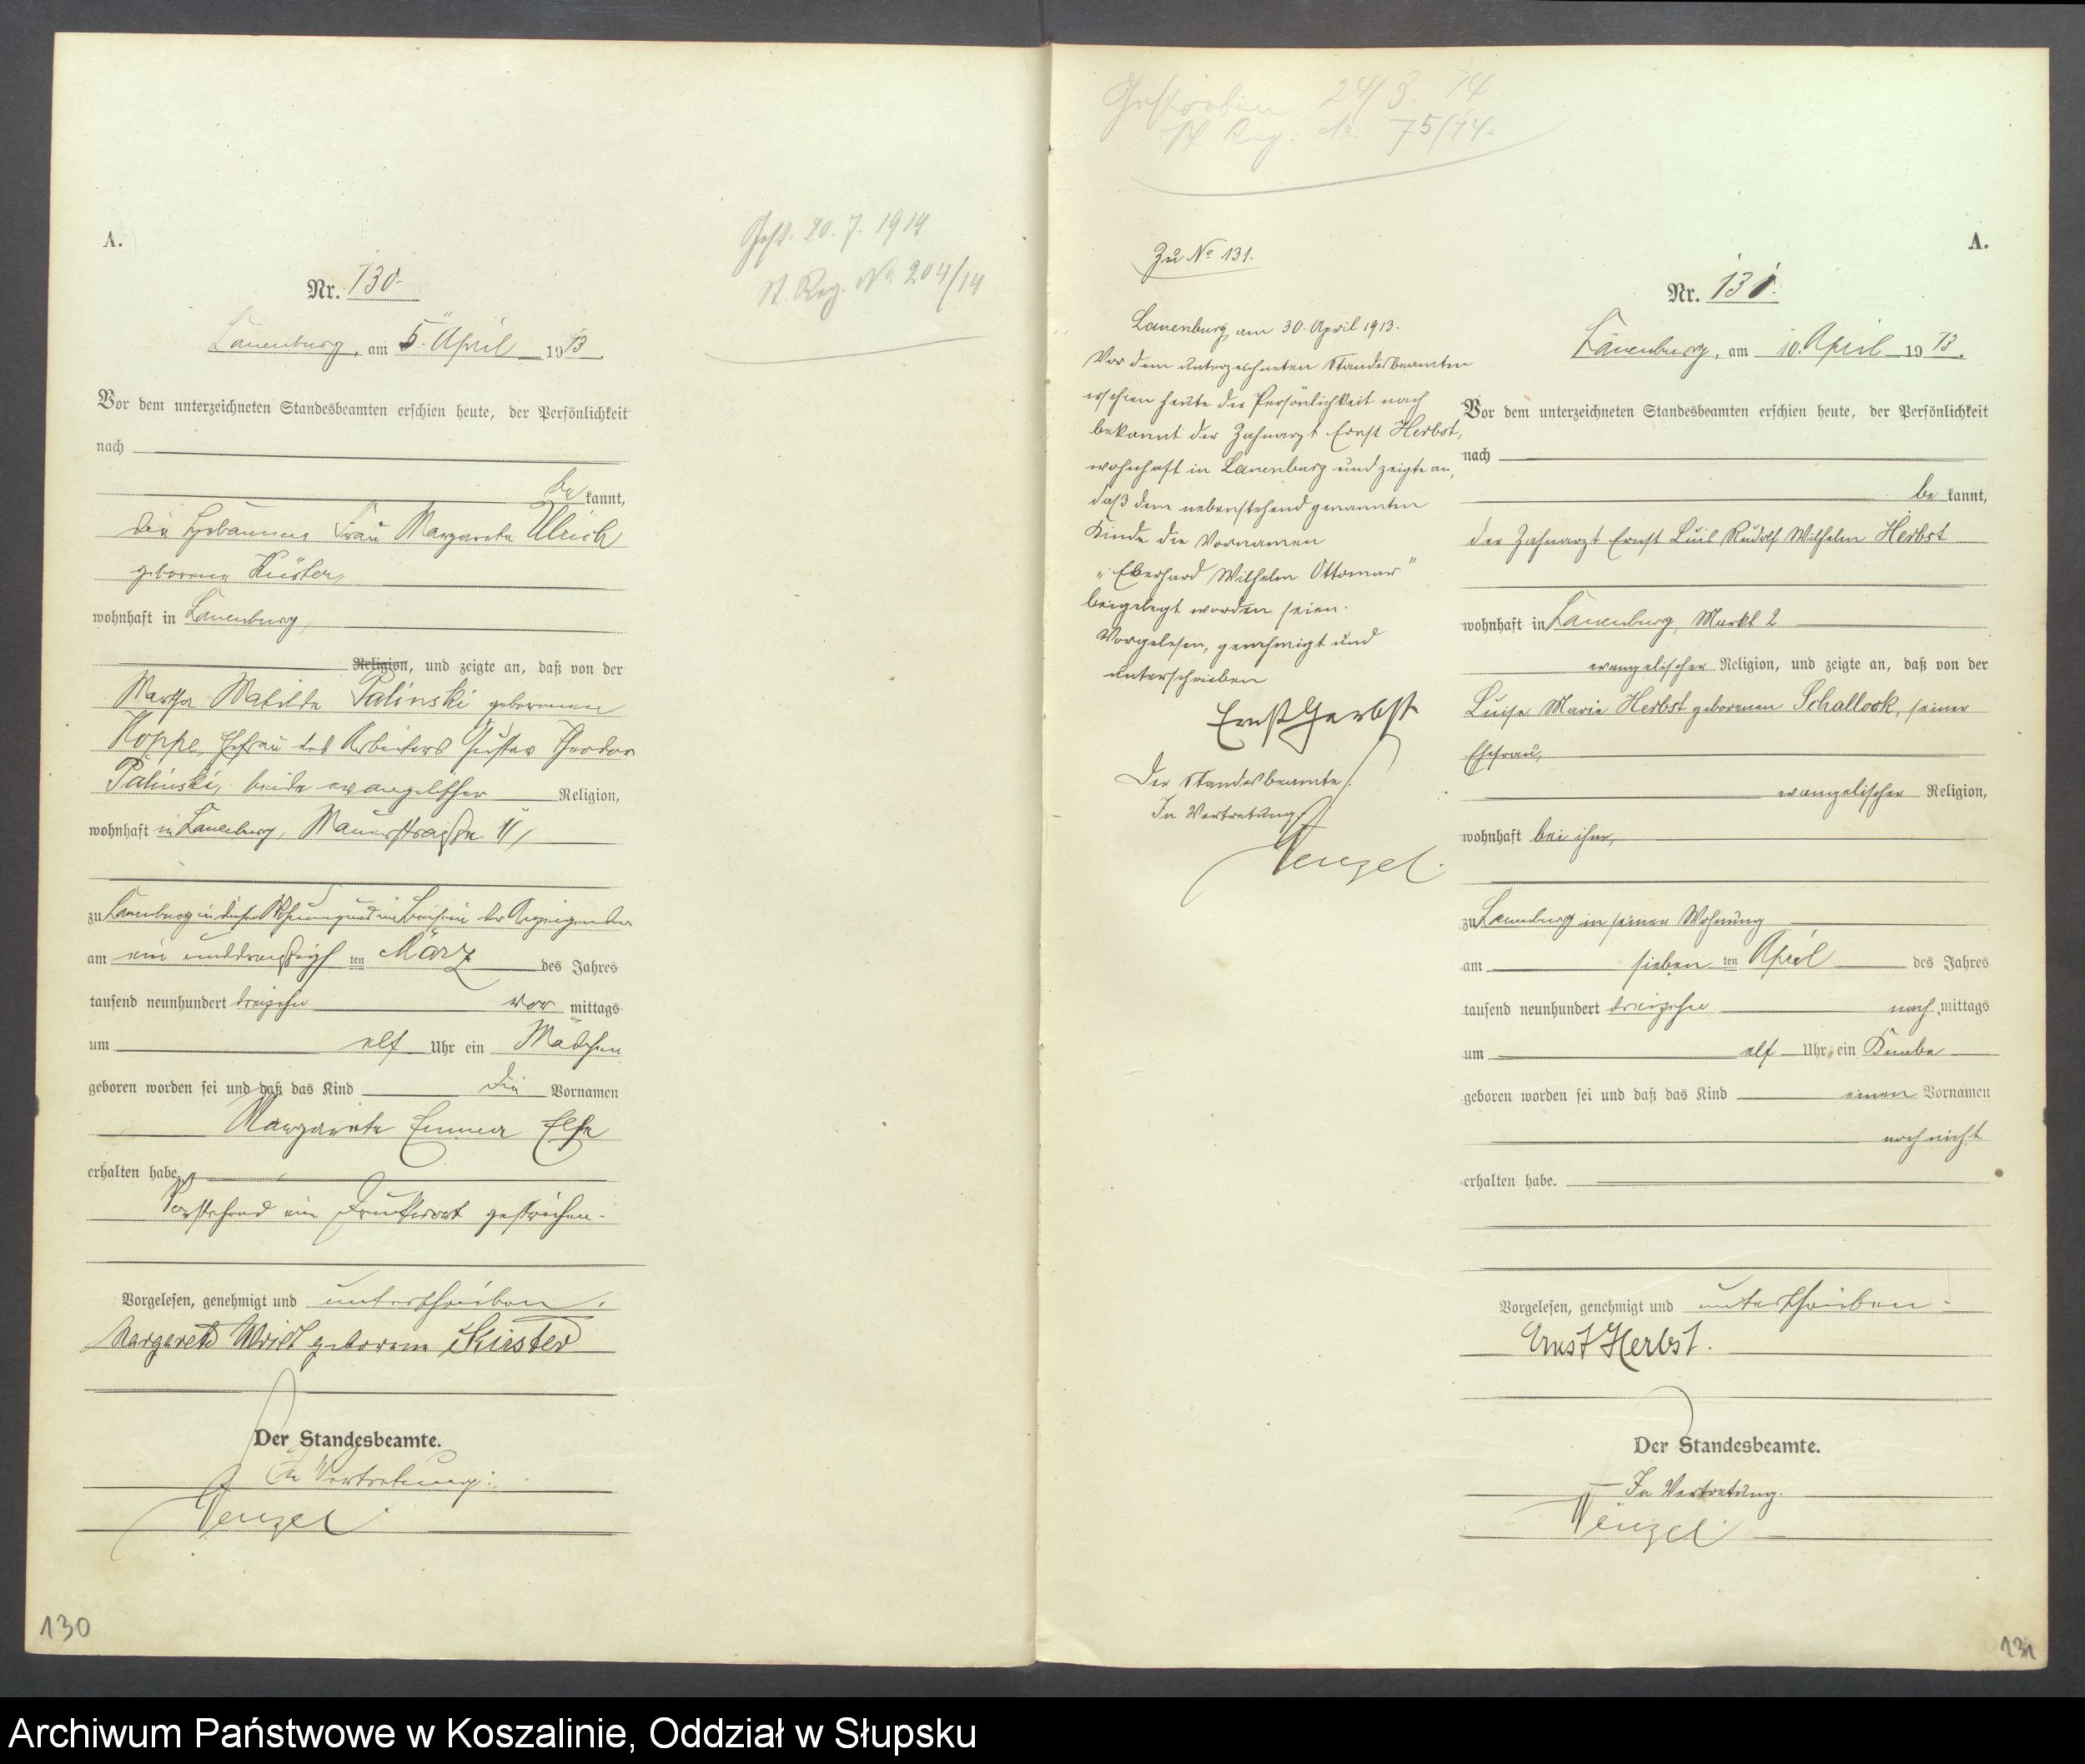 A.
Nr. 130.
Lauenburg, am 5. April 1913.
Vor dem unterzeichneten Standesbeamten erschien heute, der Persönlichkeit
nach
be kannt,
die Hebamme Frau Margarete Ulrich
geborene Küster,
wohnhaft in Lauenburg,
Religion, und zeigte an, daß von der
Martha Matilde Palinski geborenen
Koppe, Ehefrau des Arbeiters Gustav Theodor
Palinski, beide evangelischer Religion,
wohnhaft in Lauenburg, Mauerstraße
zu Lauenburg in dieser Wohnung und im Beisein der Anzeigenden
am ein unddreißigsten März des Jahres
tausend neunhundert dreizehn vor mittags
um elf Uhr ein Mädchen
geboren worden sei und daß das Kind die Vornamen
Margarete Emma Else
erhalten habe.
Vorstehend ein Druckwort gestrichen.
Vorgelesen, genehmigt und unterschrieben.
geborene Küster
Der Standesbeamte.
In Vertretung:
Wenzel
130
Gest. 20. 7. 1914
St. Reg. No. 204/14
Gestorben 24/3. 14
St. Reg. No. 75/14.
Zu No 131.
Lauenburg, am 30. April 1913.
Vor dem unterzeichneten Standesbeamten
erschien heute der Persönlichkeit nach
bekannt der Zahnarzt Ernst Herbst,
wohnhaft in Lauenburg und zeigte an,
daß dem nebenstehend genannten
Kinde die Vornamen
„Eberhard Wilhelm Ottomar"
beigelegt worden seien.
Vorgelesen, genehmigt und
unterschrieben
Ernst Herbst
Der Standesbeamte.
In Vertretung
Wenzel.
A.
Nr. 131.
Lauenburg, am 10. April 1913.
Vor dem unterzeichneten Standesbeamten erschien heute, der Persönlichkeit
nach
be kannt,
der Zahnarzt Ernst Luis Rudolf Wilhelm Herbst
wohnhaft in Lauenburg, Markt 2
evangelischer Religion, und zeigte an, daß von der
Luise Marie Herbst geborenen Schallock, seiner
Ehefrau,
evangelischer Religion,
wohnhaft bei ihm,
zu Lauenburg in seiner Wohnung
am sieben ten April des Jahres
tausend neunhundert dreizehn nach mittags
um elf Uhr ein Knabe
geboren worden sei und daß das Kind einen Vornamen
noch nicht
erhalten habe.
Vorgelesen, genehmigt und unterschrieben.
Ernst Herbst.
Der Standesbeamte.
In Vertretung.
Wenzel
131
Archiwum Państwowe w Koszalinie, Oddział w Słupsku